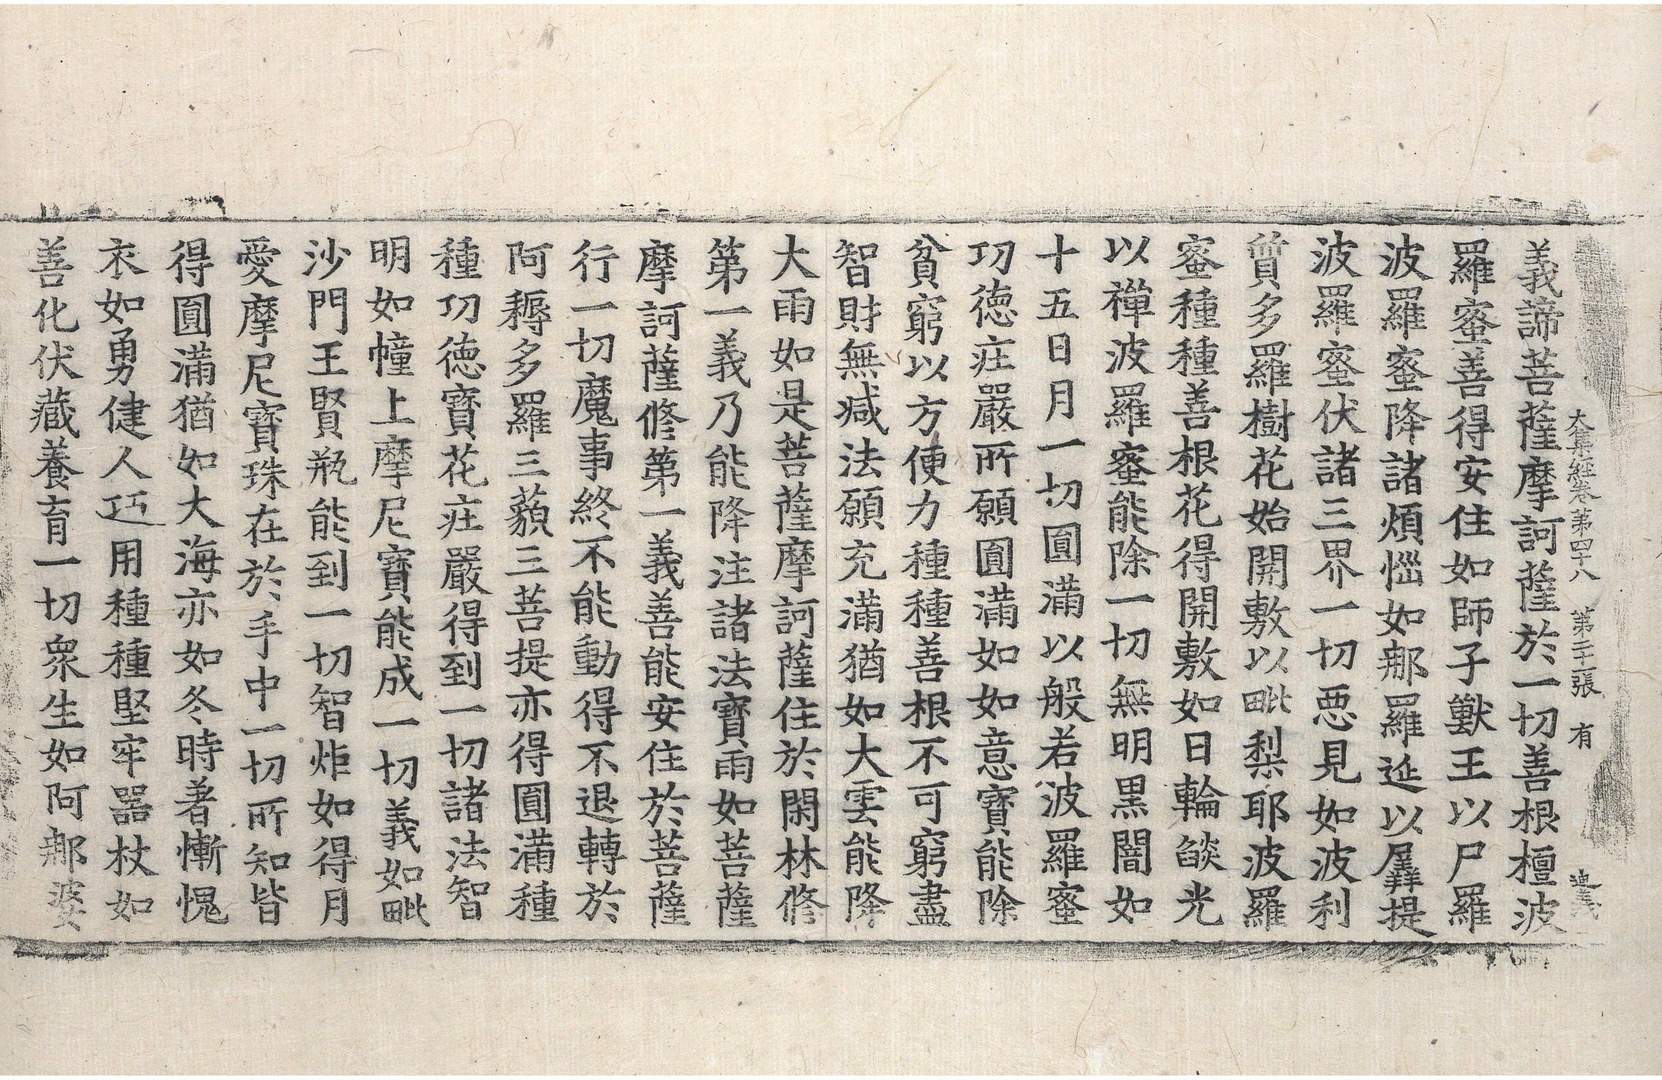 大集經卷第四十八 第二十張 有
義諦菩薩摩訶薩於一切善根檀波
羅蜜善得安住如師子獸王以尸羅
波羅蜜降諸煩惱如那羅延以羼提
波羅蜜伏諸三界一切惡見如波利
質多羅樹花始開敷以毗梨耶波羅
蜜種種善根花得開敷如日輪燄光
以禪波羅蜜能除一切無明黑闇如
十五日月一切圓滿以般若波羅蜜
功德莊嚴所願圓滿如如意寶能除
貧窮以方便力種種善根不可窮盡
智財無減法願充滿猶如大雲能降
大雨如是菩薩摩訶薩住於閑林修
第一義乃能降注諸法寶雨如菩薩
摩訶薩修第一義善能安住於菩薩
行一切魔事終不能動得不退轉於
阿耨多羅三藐三菩提亦得圓滿種
種功德寶花莊嚴得到一切諸法智
明如幢上摩尼寶能成一切義如毗
沙門王賢瓶能到一切智炬如得月
愛摩尼寶珠在於手中一切所知皆
得圓滿猶如大海亦如冬時著慚愧
衣如勇健人巧用種種堅牢器杖如
善化伏藏養育一切眾生如阿那婆